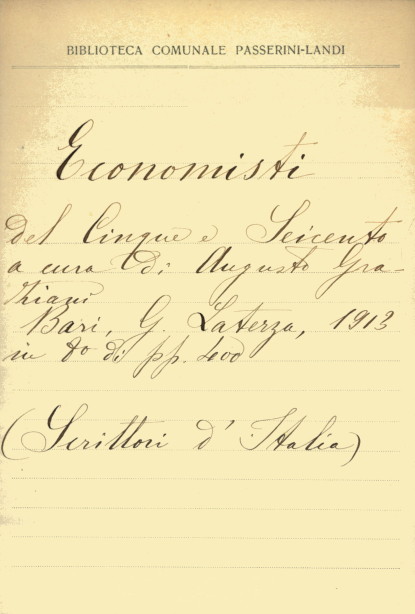 BIBLIOTECA COMUNALE PASSERINI-LANDI
Economisti
del Cinque e Seicento
a cura di Augusto Gra-
ziani
Bari, G. Laterza, 1913
in 8º di pp. 400
(Scrittori d'Italia)